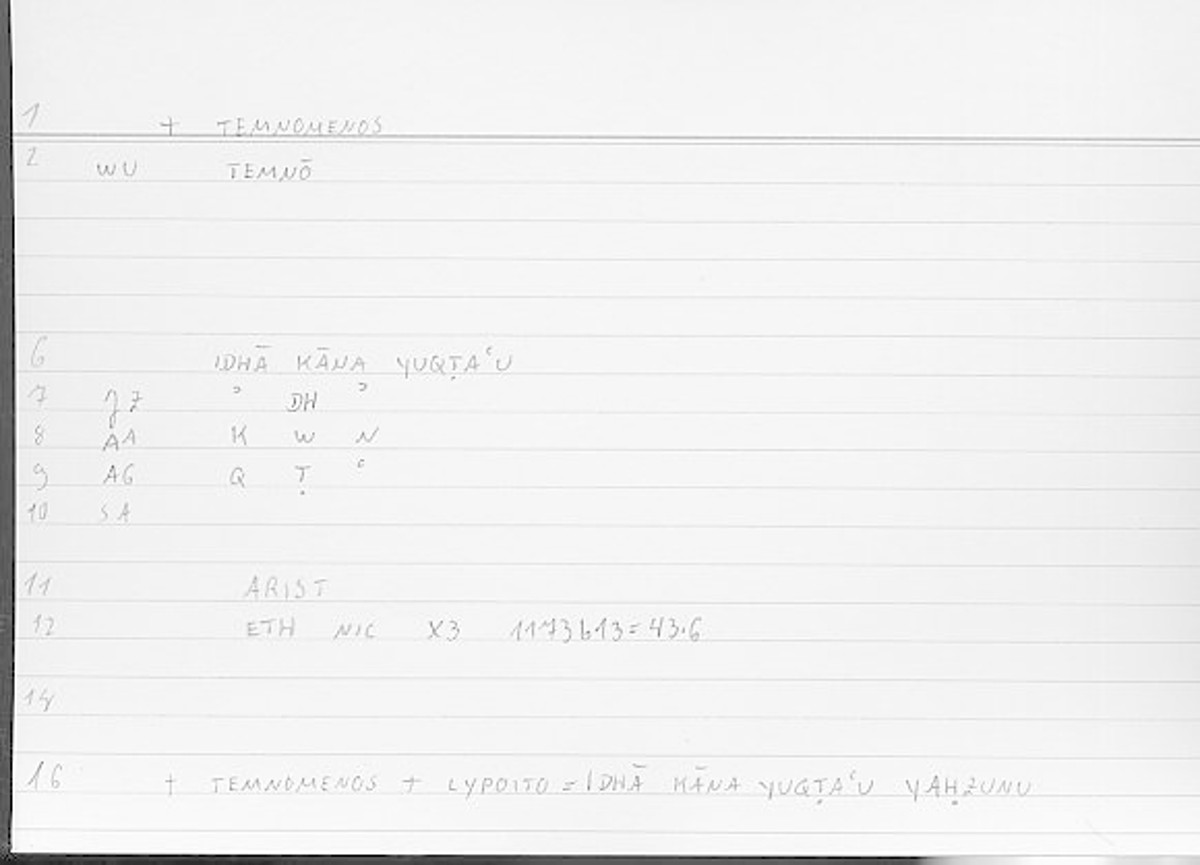 1 + TEMNOMENOS
2 WU TEMNŌ
6 IDHĀ KĀNA YUQṬAʿU
7 ʾ DH ʾ
8 AA K W N
9 AG Q Ṭ ʿ
10 SA
11 ARIST
12 ETH NIC X3 1173b13=43.6
14
16 + TEMNOMENOS + LYPOITO = IDHĀ KĀNA YUQṬAʿU YAḤZUNU